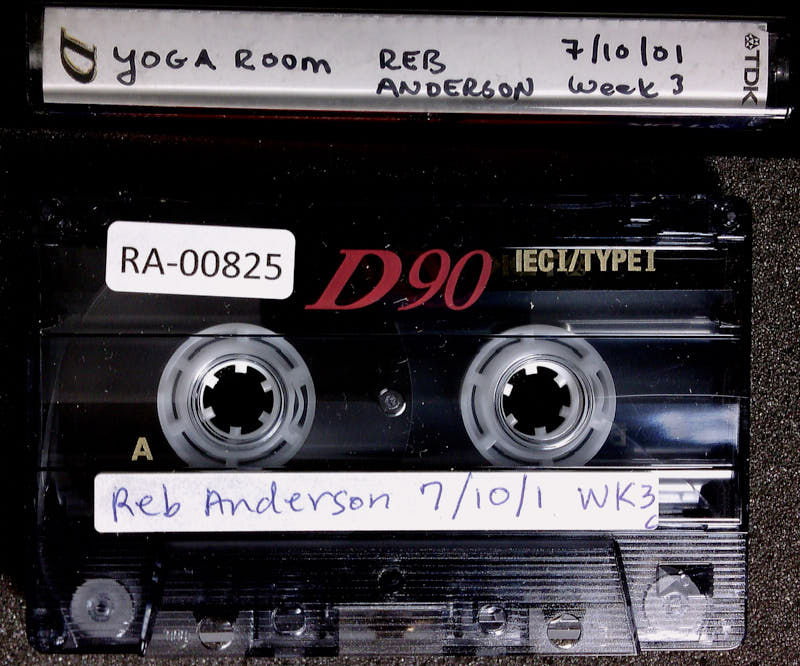 D YOGA ROOM REB 7/10/01
ANDERSON Week 3
TDK
RA-00825
D90 IECI/TYPEI
A
Reb Anderson 7/10/1 WK3